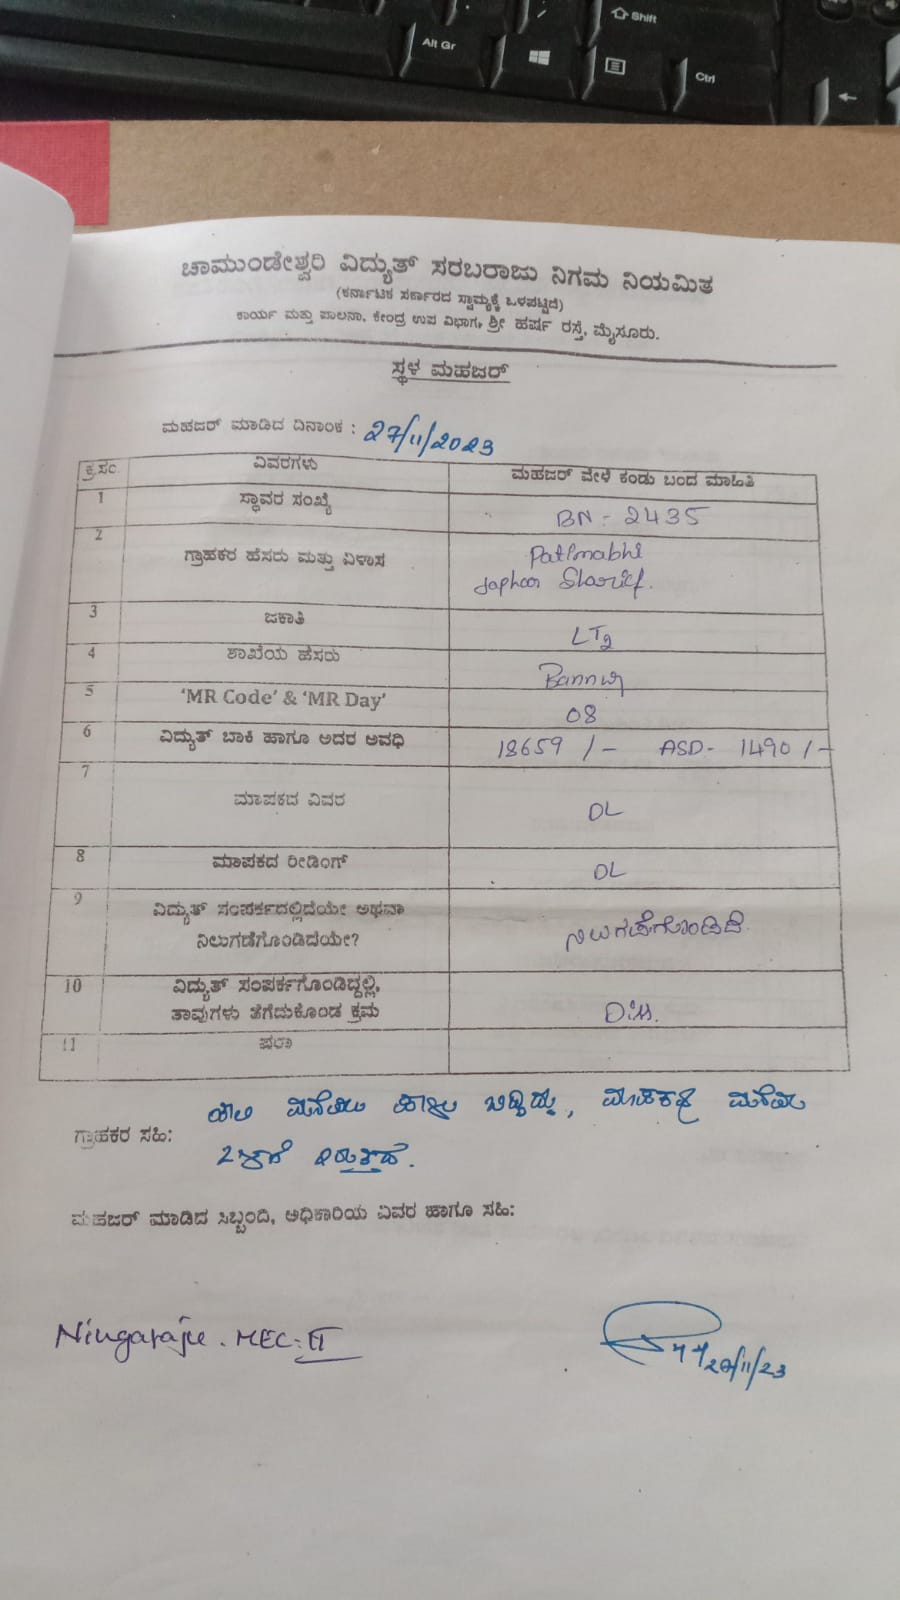 Shift
Alt Gr
Ctrl
ಚಾಮುಂಡೇಶ್ವರಿ ವಿದ್ಯುತ್ ಸರಬರಾಜು ನಿಗಮ ನಿಯಮಿತ
(ಕರ್ನಾಟಕ ಸರ್ಕಾರದ ಸ್ವಾಮ್ಯಕ್ಕೆ ಒಳಪಟ್ಟಿದೆ)
ಕಾರ್ಯ ಮತ್ತು ಪಾಲನಾ, ಕೇಂದ್ರ ಉಪ ವಿಭಾಗ, ಶ್ರೀ ಹರ್ಷ ರಸ್ತೆ, ಮೈಸೂರು.
ಸ್ಥಳ ಮಹಜರ್
ಮಹಜರ್ ಮಾಡಿದ ದಿನಾಂಕ : 27/11/2023
ಕ್ರ.ಸಂ. ವಿವರಗಳು ಮಹಜರ್ ವೇಳೆ ಕಂಡು ಬಂದ ಮಾಹಿತಿ
1 ಸ್ಥಾವರ ಸಂಖ್ಯೆ BN - 2435
2 ಗ್ರಾಹಕರ ಹೆಸರು ಮತ್ತು ವಿಳಾಸ
3 ಜಕಾತಿ LT2
4 ಶಾಖೆಯ ಹೆಸರು
5 'MR Code' & 'MR Day' 08
6 ವಿದ್ಯುತ್ ಬಾಕಿ ಹಾಗೂ ಅದರ ಅವಧಿ 18659 /- ASD- 1490 /-
7 ಮಾಪಕದ ವಿವರ DL
8 ಮಾಪಕದ ರೀಡಿಂಗ್ DL
9 ವಿದ್ಯುತ್ ಸಂಪರ್ಕದಲ್ಲಿದೆಯೇ ಅಥವಾ
ನಿಲುಗಡೆಗೊಂಡಿದೆಯೇ? ನಿಲುಗಡೆಗೊಂಡಿದೆ
10 ವಿದ್ಯುತ್ ಸಂಪರ್ಕಗೊಂಡಿದ್ದಲ್ಲಿ,
ತಾವುಗಳು ತೆಗೆದುಕೊಂಡ ಕ್ರಮ
11 ಷರಾ
ಗ್ರಾಹಕರ ಸಹಿ:
ಮಹಜರ್ ಮಾಡಿದ ಸಿಬ್ಬಂದಿ, ಅಧಿಕಾರಿಯ ವಿವರ ಹಾಗೂ ಸಹಿ:
Ningaraju . MEC-II